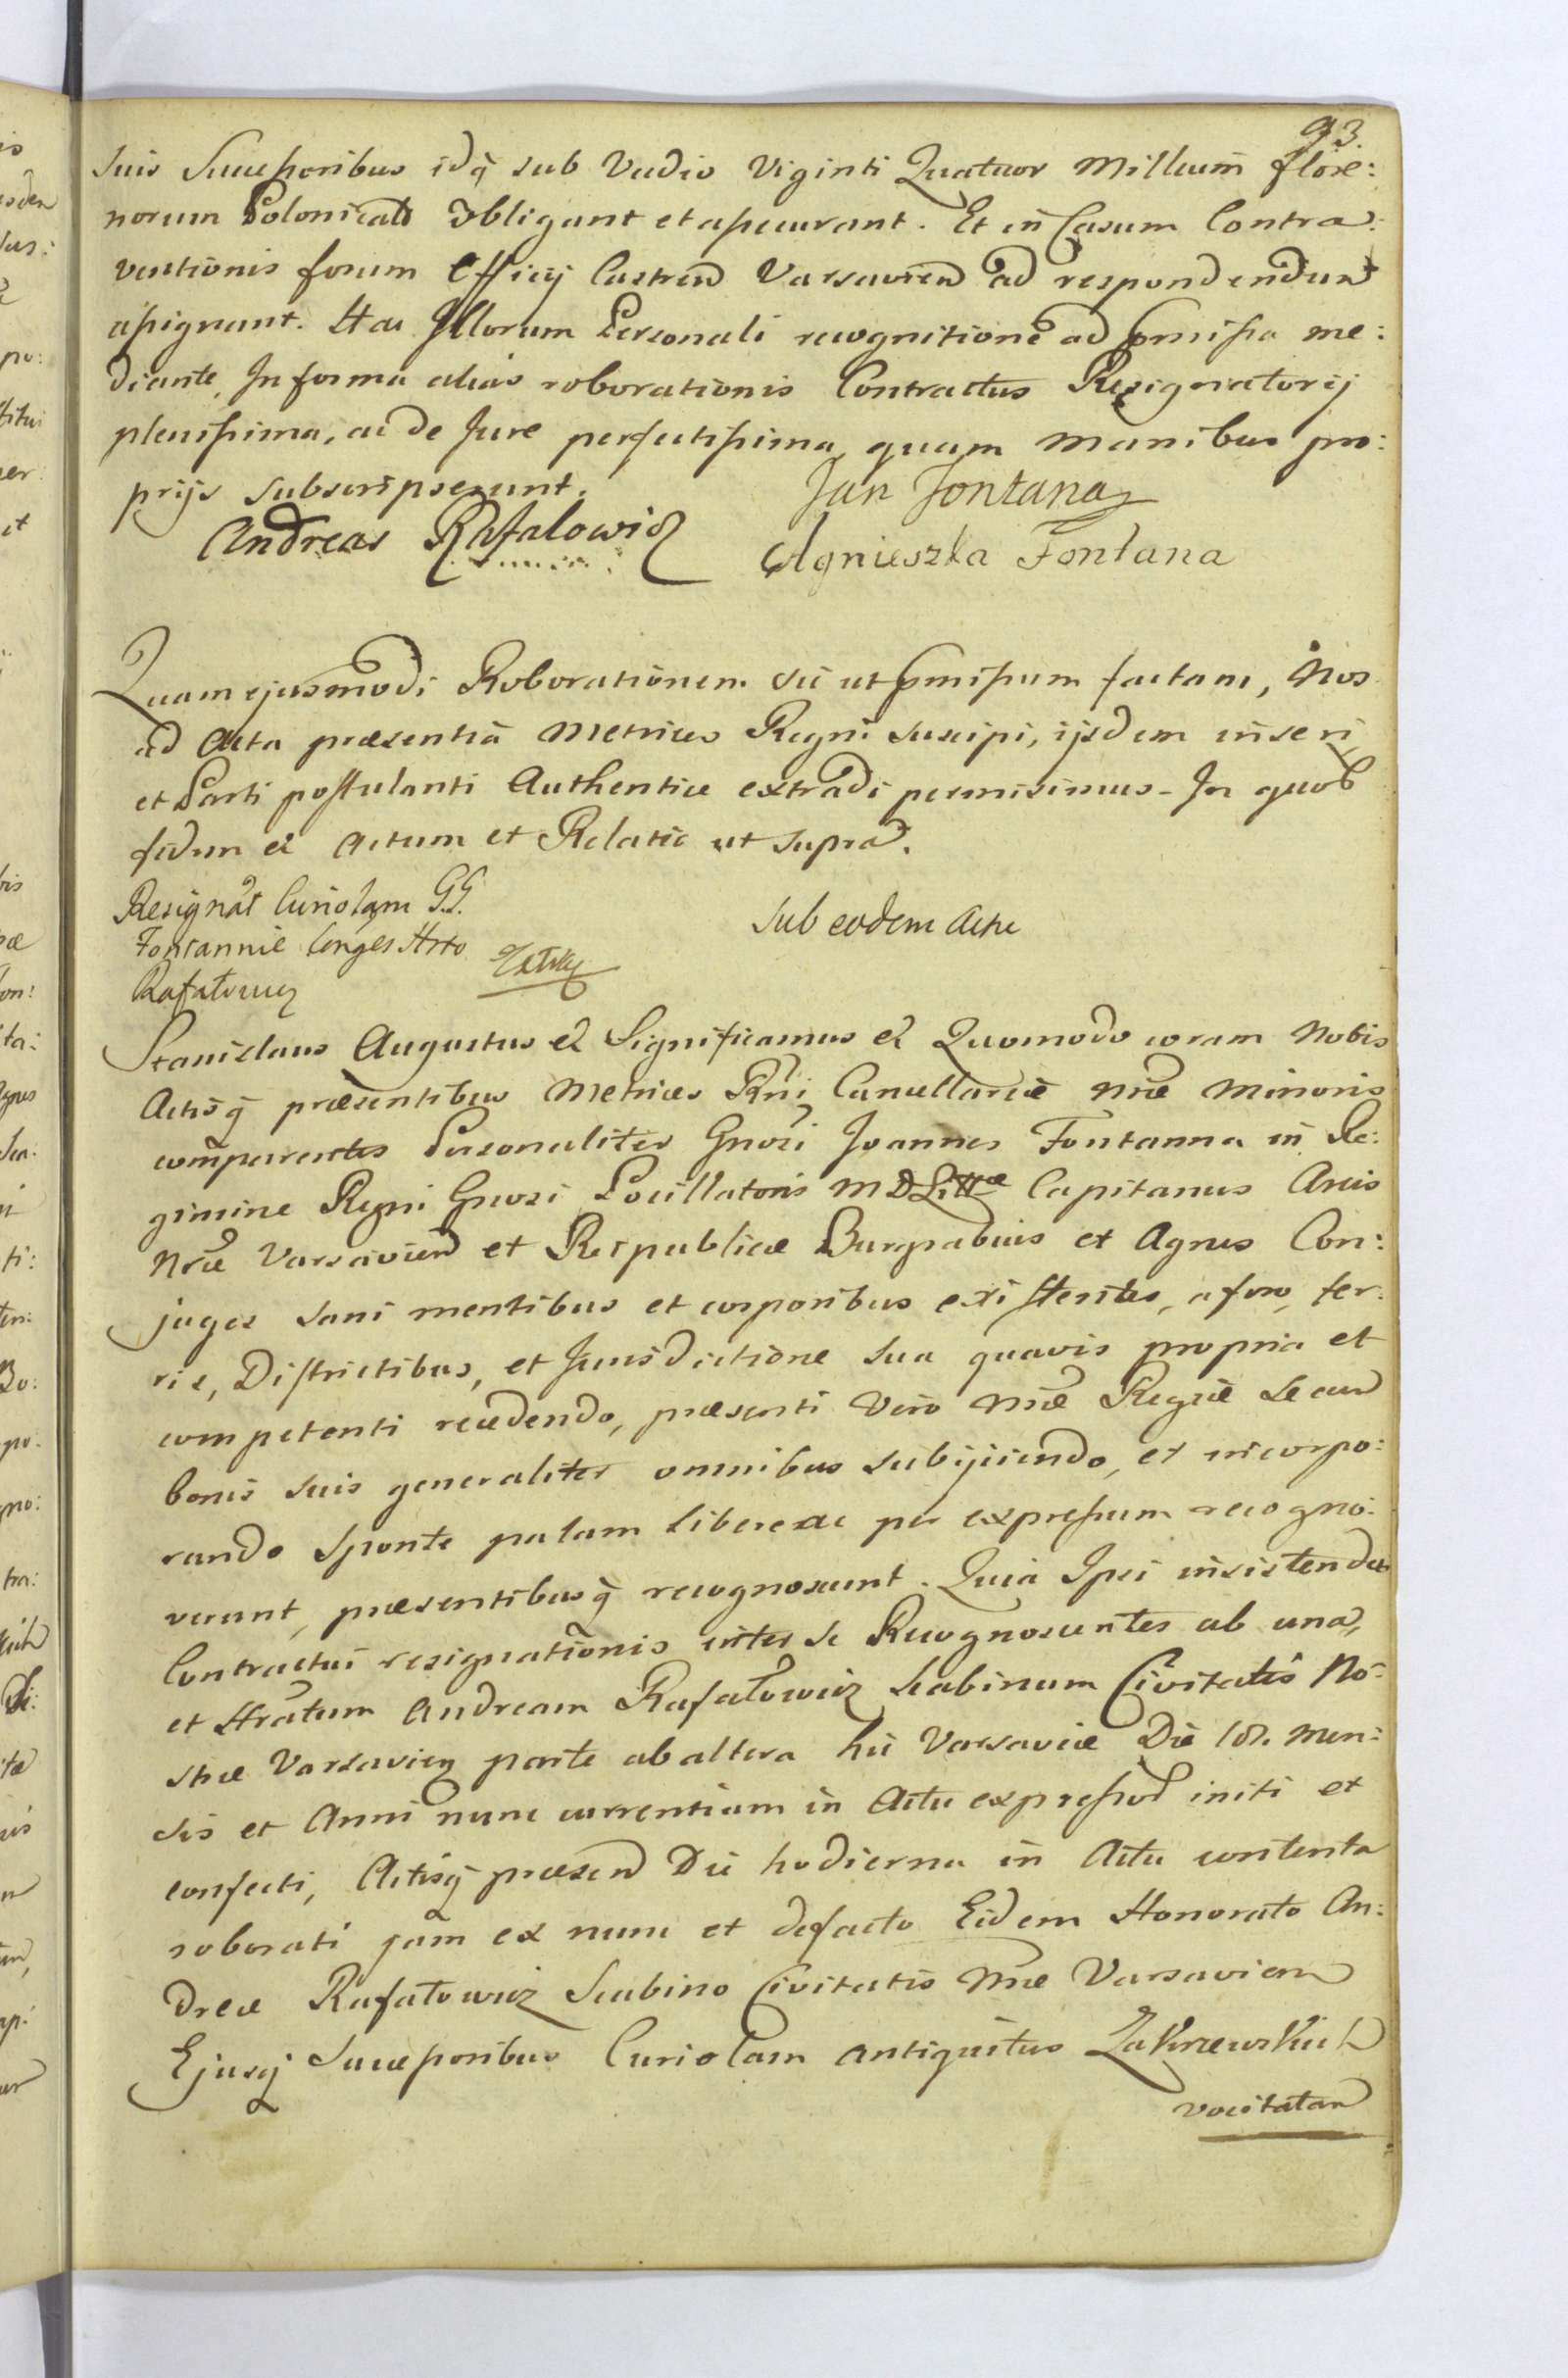 93.
suis Successoribus idq̃ sub Vadio Viginti Quatuor Millium flore:
norum Polonicał Obligant et assecurant. Et in Casum Contra:
ventionis forum Officij Castren Varsavien ad respondendum
assignant. Hac Illorum Personali recognitione ad præmissa me:
diante, In forma alias roborationis Contractus Resignatorij
plenissima, ac de Jure perfectissima, quam manibus pro:
prijs subscripserunt.
Jan Fontana
Andreas Rafalowicz
Agnieszka Fontana
Quam ejusmodi Roborationem sic ut præmissum factam, Nos
ad Acta præsentia Metrices Regni suscipi, ijsdem inseri,
et Parti postulanti Authentice extradi permisimus. In quor
fidem et Actum et Relatio ut supra.
Resignat Curiolam G.G.
Fontannie Conges Hrto
Rafałowicz
Sub eodem Actu
Stanislaus Augustus et Significamus et Quomodo coram Nobis
Actisq̃ præsentibus Metrices Rñi Cancellariæ Nræ Minoris
comparentes Personaliter Gnosi Joannes Fontanna in Re:
gimine Regni Gnosi Pocillatoris M D Littæ Capitanus Arcis
Nræ Varsavien et Reipublicæ Burgrabius et Agnes Con:
juges sani mentibus et corporibus existentes, a foro, ter:
ris, Districtibus, et Jurisdictione sua quavis propria et
competenti recedendo, præsenti vero Nræ Regiæ se cum
bonis suis generaliter omnibus subijiciendo, et incorpo:
rando sponte palam libere ac per expressum recogno:
verunt, præsentibusq̃ recognoscunt. Quia Ipsi insistendo
Contractui resignationis inter se Recognoscentes ab una,
et Hratum Andream Rafałowicz Scabinum Civitatis No:
stræ Varsavien parte ab altera hic Varsaviæ Die 18. Men:
sis et Anni nunc currentium in Actu expressor initi et
confecti, Actisq̃ præsen Die hodierna in Actu contenta
roborati jam ex nunc et defacto Eidem Honorato An:
dreæ Rafałowicz Scabino Civitatis Nræ Varsavien
Ejusq̃ Successoribus Curiolam antiquitus Zakrzewskich
vocitatam